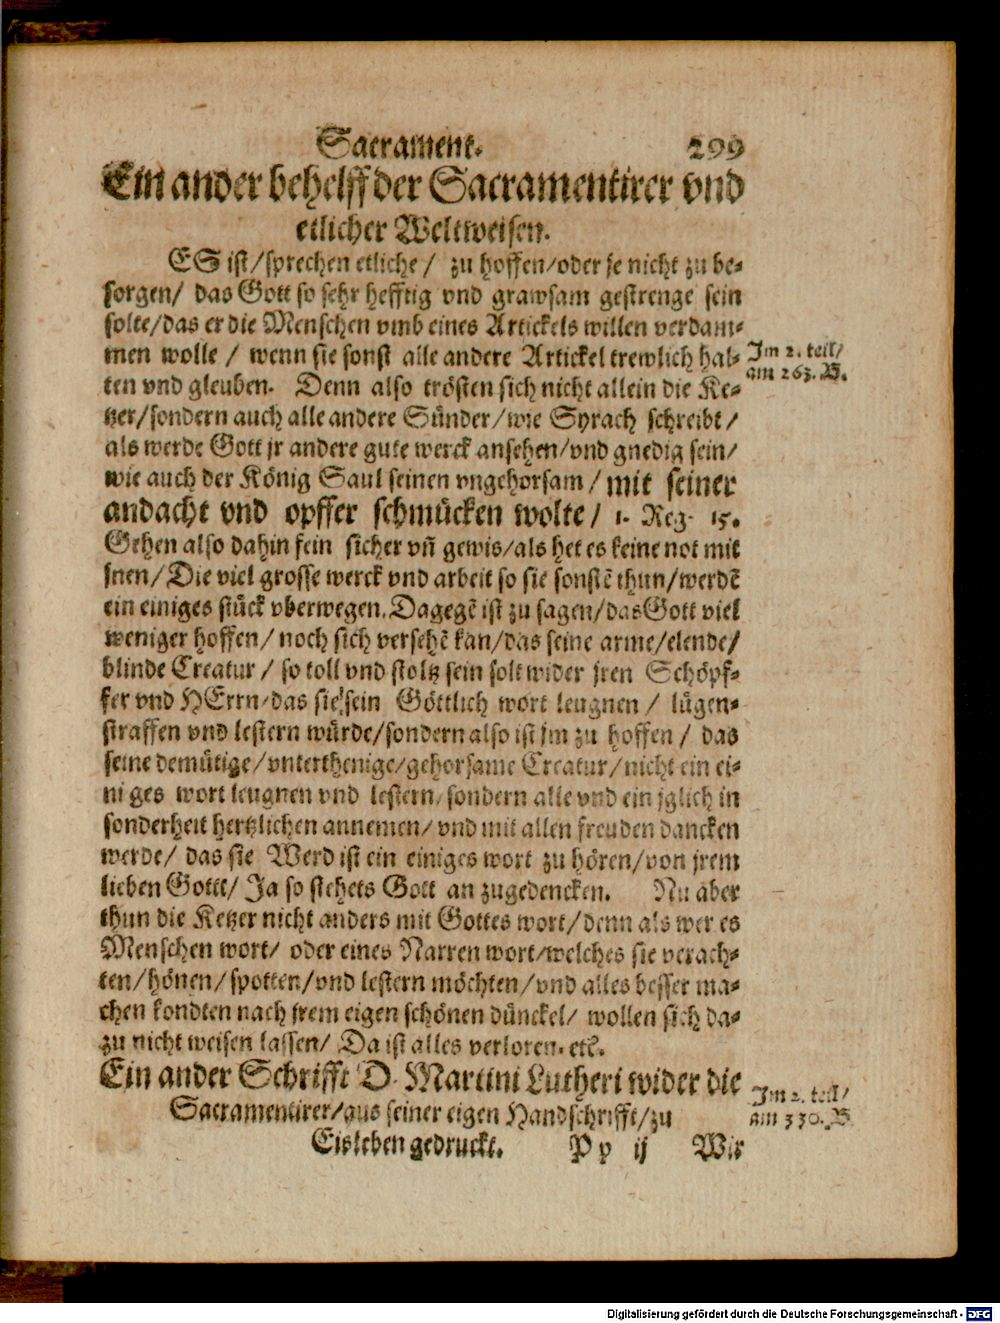 Sacrament. 299
Ein ander behelff der Sacramentirer vnd
etlicher Weltweisen.
ES ist/sprechen etliche/ zu hoffen/oder je nicht zu be-
sorgen/ das Gott so sehr hefftig vnd grawsam gestrenge sein
solte/das er die Menschen vmb eines Artickels willen verdam-
men wolle / wenn sie sonst alle andere Artickel trewlich hal-
ten vnd gleuben. Denn also trösten sich nicht allein die Ke-
tzer/sondern auch alle andere Sünder/wie Syrach schreibt/
als werde Gott jr andere gute werck ansehen/vnd gnedig sein/
wie auch der König Saul seinen vngehorsam/ mit seiner
andacht vnd opffer schmücken wolte/ 1. Reg. 15.
Gehen also dahin fein sicher vñ gewis/als het es keine not mit
jnen/ Die viel grosse werck vnd arbeit so sie sonstē thun/werdē
ein einiges stück vberwegen. Dagegē ist zu sagen/das Gott viel
weniger hoffen/ noch sich versehē kan/das seine arme/elende/
blinde Creatur/ so toll vnd stoltz sein solt wider jren Schöpf-
fer vnd HErrn/das sie sein Göttlich wort leugnen / lügen-
straffen vnd lestern würde/sondern also ist jm zu hoffen/ das
seine demütige/vnterthenige/gehorsame Creatur/nicht ein ei-
niges wort leugnen vnd lestern/sondern alle vnd ein jglich in
sonderheit hertzlichen annemen/vnd mit allen freuden dancken
werde/ das sie Werd ist ein einiges wort zu hören/von jrem
lieben Gott/ Ja so stehets Gott an zugedencken. Nu aber
thun die Ketzer nicht anders mit Gottes wort/denn als wer es
Menschen wort/ oder eines Narren wort/welches sie verach-
ten/hönen/spotten/vnd lestern möchten/vnd alles besser ma-
chen kondten nach jrem eigen schönen dünckel/ wollen sich da-
zu nicht weisen lassen/ Da ist alles verloren. etc.
Ein ander Schrifft D. Martini Lutheri wider die
Sacramentirer/aus seiner eigen Handschrifft/zu
Eisleben gedruckt. P p ij Wir
Im 2. teil/
am 263. B.
Im 2. teil/
am 330. B